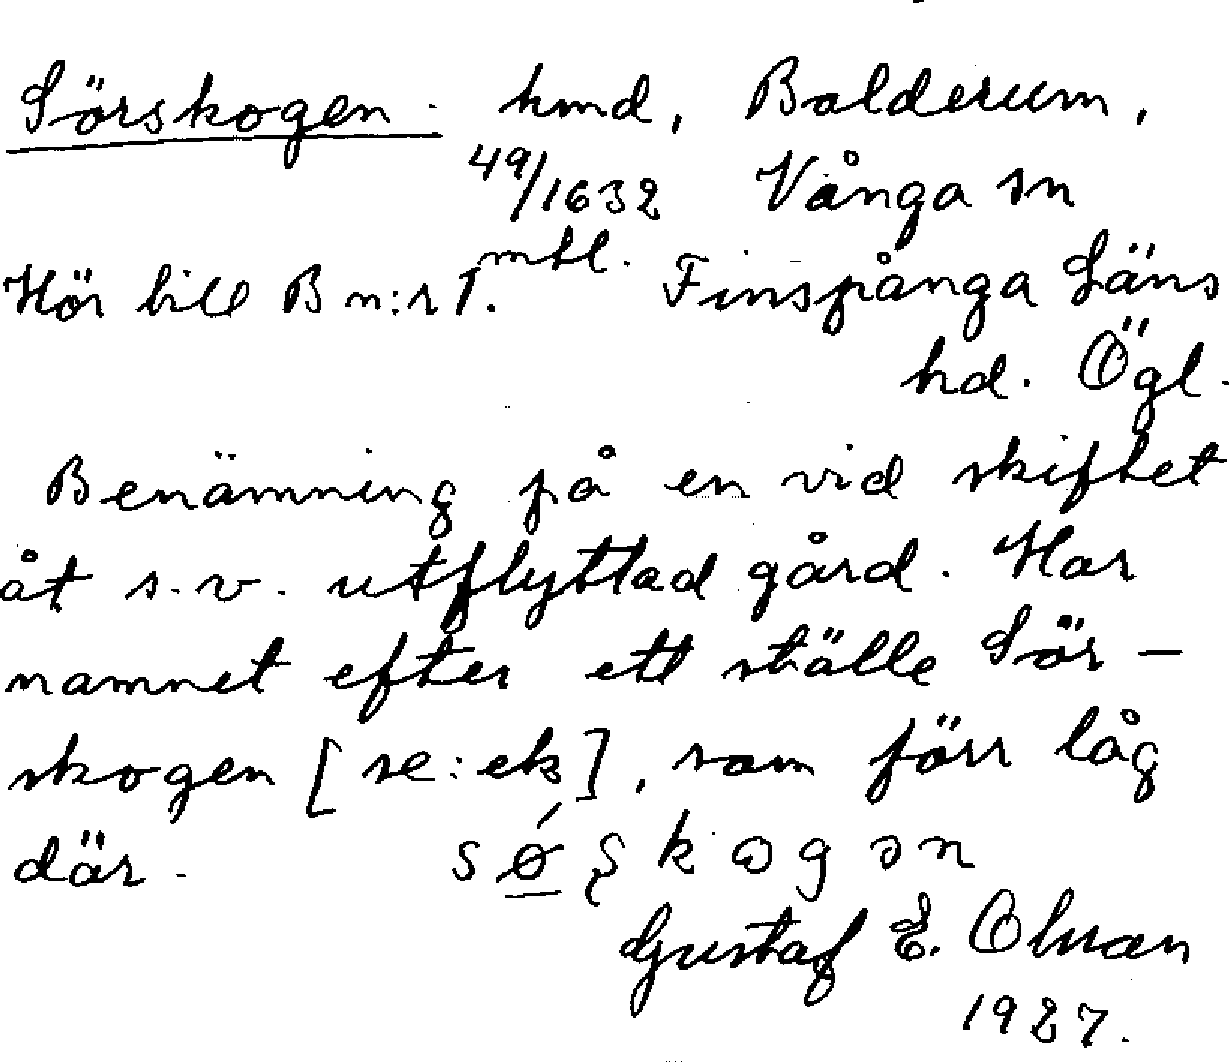 Sörskogen. hmd, Bolderum,
49/1632 mtl. Vånga sn
Hör till B n:r 1. Finspånga Läns
hd. Ögl.
Benämning på en vid skiftet
åt s.v. utflyttad gård. Har
namnet efter ett ställe Sör-
skogen [se: ek], som förr låg
där.
Gustaf E. Olsson
1927.